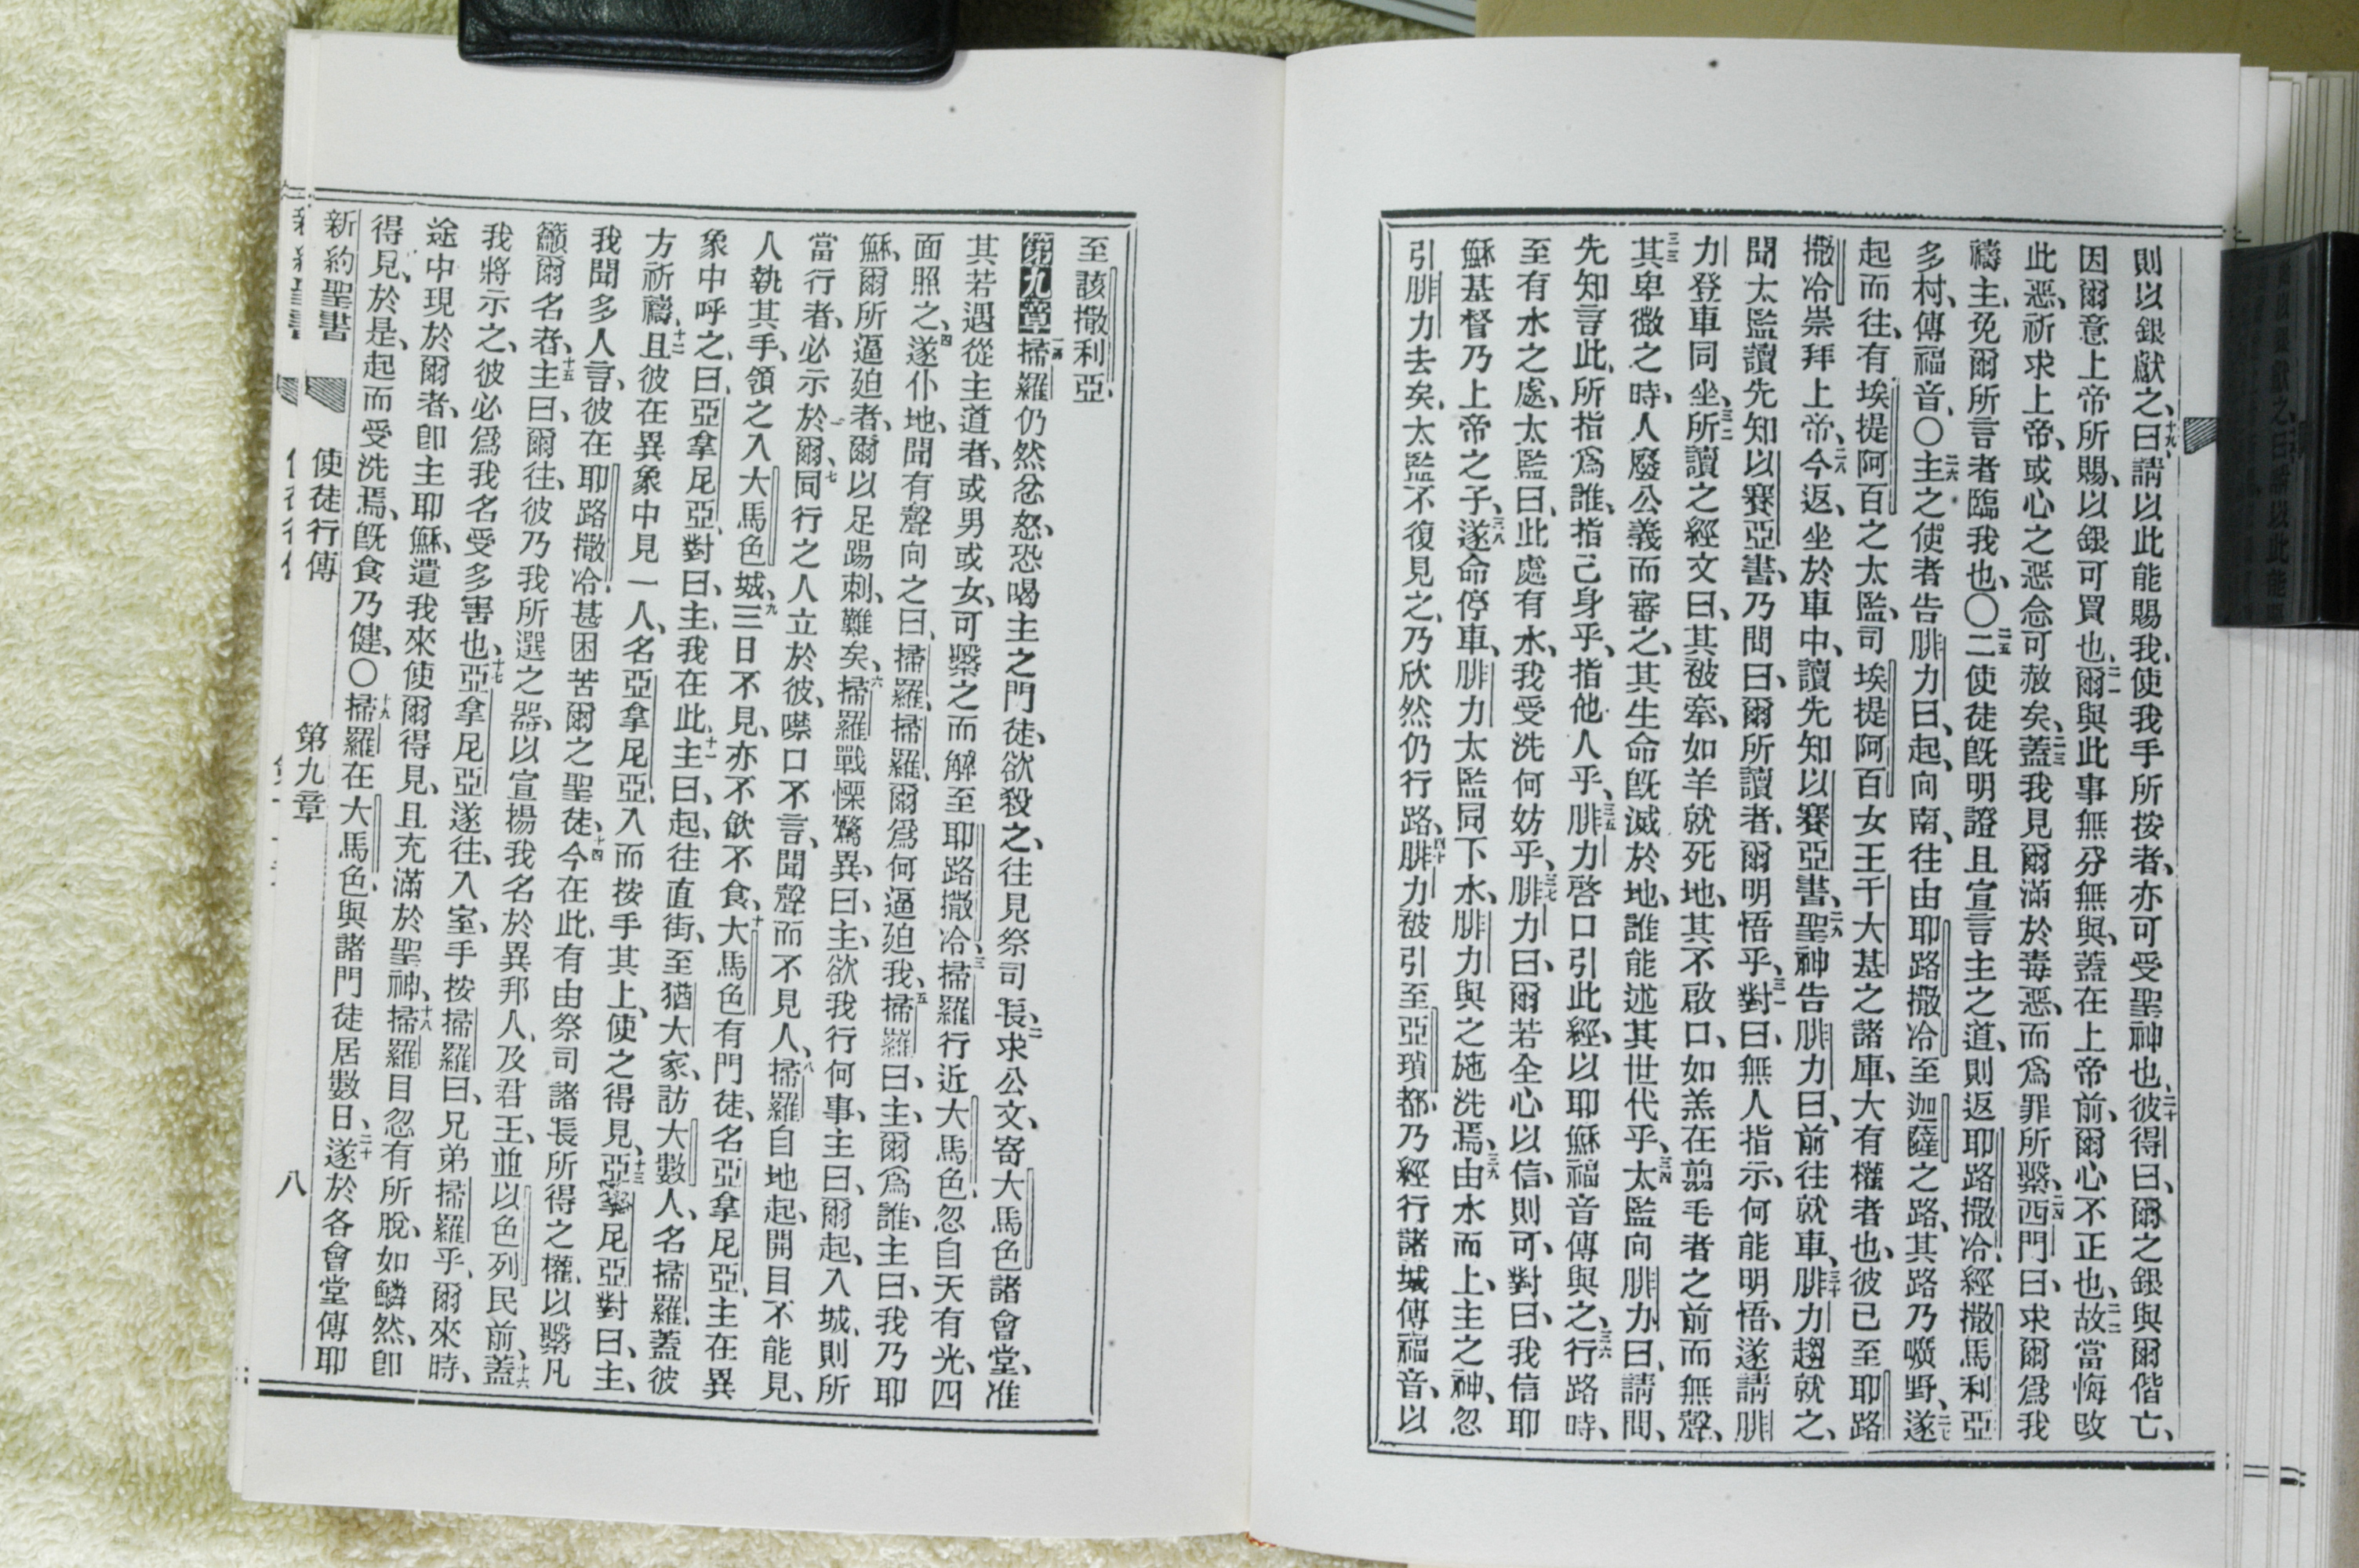 則以銀獻之、十九曰、請以此能賜我、使我手所按者、亦可受聖神也、二十彼得曰、爾之銀與爾偕亡、
因爾意上帝所賜、以銀可買也、二一爾與此事無分無與、蓋在上帝前、爾心不正也、二二故當悔改
此惡、祈求上帝、或心之惡念可赦矣、二三蓋我見爾滿於毒惡、而爲罪所繫、二四西門曰、求爾爲我
禱主、免爾所言者臨我也、〇二五二使徒旣明證且宣言主之道、則返耶路撒冷、經撒馬利亞
多村、傳福音、〇二六主之使者告腓力曰、起、向南、往由耶路撒冷至迦薩之路、其路乃曠野、二七遂
起而往、有埃提阿百之太監、司埃提阿百女王干大基之諸庫、大有權者也、彼已至耶路
撒冷崇拜上帝、二八今返、坐於車中、讀先知以賽亞書、二九聖神告腓力曰、前往就車、三十腓力趨就之、
聞太監讀先知以賽亞書、乃問曰、爾所讀者、爾明悟乎、三一對曰、無人指示、何能明悟、遂請腓
力登車同坐、三二所讀之經文曰、其被牽、如羊就死地、其不啟口、如羔在剪毛者之前而無聲、
三三其卑微之時、人廢公義而審之、其生命旣滅於地、誰能述其世代乎、三四太監向腓力曰、請問、
先知言此、所指爲誰、指己身乎、指他人乎、三五腓力啓口引此經、以耶穌福音傳與之、三六行路時、
至有水之處、太監曰、此處有水、我受洗何妨乎、三七腓力曰、爾若全心以信、則可、對曰、我信耶
穌基督乃上帝之子、三八遂命停車、腓力太監同下水、腓力與之施洗焉、三九由水而上、主之神、忽
引腓力去矣、太監不復見之、乃欣然仍行路、四十腓力被引至亞瑣都、乃經行諸城傳福音、以
至該撒利亞、
第九章一掃羅仍然忿怒、恐喝主之門徒、欲殺之、往見祭司長、二求公文、寄大馬色諸會堂、准
其若遇從主道者、或男或女、可繫之而解至耶路撒冷、三掃羅行近大馬色、忽自天有光、四
面照之、四遂仆地、聞有聲向之曰、掃羅、掃羅、爾爲何逼迫我、五掃羅曰、主、爾爲誰、主曰、我乃耶
穌、爾所逼迫者、爾以足踢刺、難矣、六掃羅戰慄驚異、曰、主、欲我行何事、主曰、爾起、入城、則所
當行者、必示於爾、七同行之人立於彼、噤口不言、聞聲而不見人、八掃羅自地起、開目不能見、
人執其手、領之入大馬色城、九三日不見、亦不飮不食、十大馬色有門徒、名亞拿尼亞、主在異
象中呼之曰、亞拿尼亞、對曰、主、我在此、十一主曰、起、往直街、至猶大家、訪大數人、名掃羅、蓋彼
方祈禱、十二且彼在異象中見一人、名亞拿尼亞、入而按手其上、使之得見、十三亞拿尼亞對曰、主、
我聞多人言、彼在耶路撒冷、甚困苦爾之聖徒、十四今在此、有由祭司諸長所得之權、以繫凡
籲爾名者、十五主曰、爾往、彼乃我所選之器、以宣揚我名於異邦人、及君王、並以色列民前、十六蓋
我將示之、彼必爲我名受多害也、十七亞拿尼亞遂往、入室、手按掃羅曰、兄弟掃羅乎、爾來時、
途中現於爾者、卽主耶穌、遣我來使爾得見、且充滿於聖神、十八掃羅目忽有所脫、如鱗然、卽
得見、於是、起而受洗焉、旣食乃健、〇十九掃羅在大馬色、與諸門徒居數日、二十遂於各會堂傳耶
新約聖書 使徒行傳 第九章 八